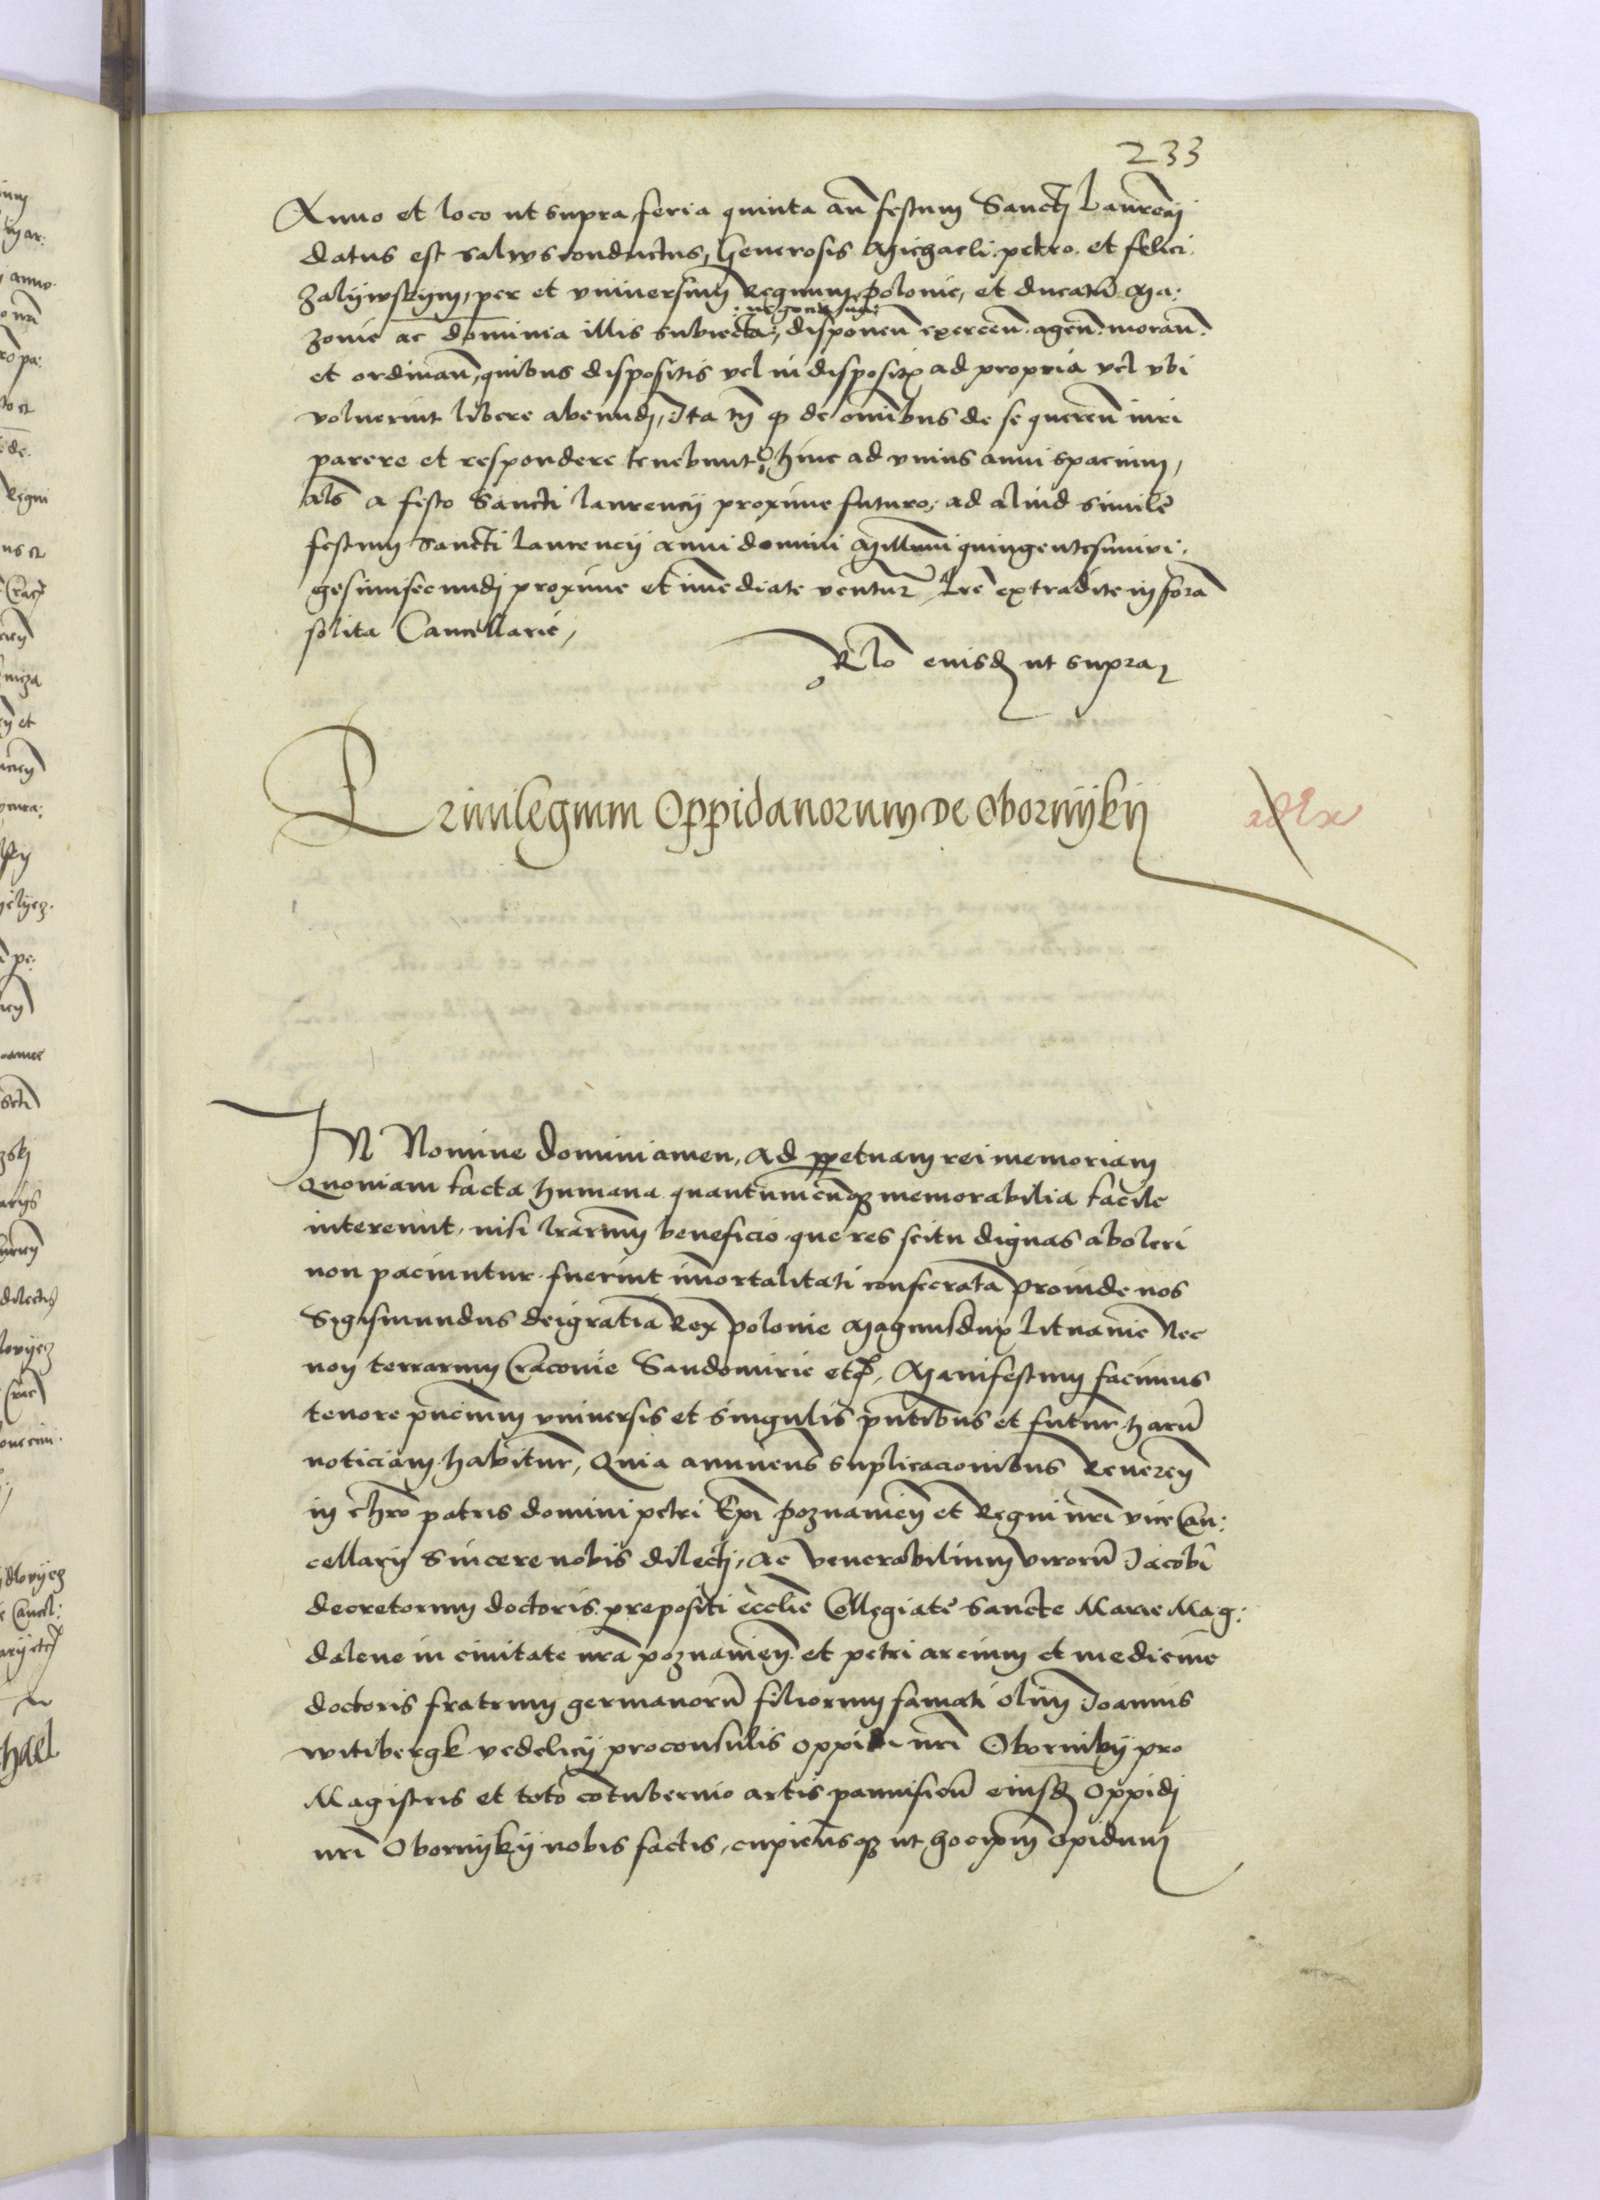 233
Anno et loco ut supra feria quinta an̄ festum Sancti Laurencij
datus est salvus conductus, Generosis Michaeli petro et felici
Zalijwskym, per et vniuersum Regnum polonie, et ducatū Ma:
zouie ac dominia illis subiecta, disponen̄ exercen̄ agen̄ moran̄
: negocia sua :
et ordinan̄, quibus dispositis vel indispositis ad propria vel vbi
voluerint libere abeundj, Ita tn̄ ꝙ de oīnibus de se queren̄ iuri
parere et respondere tenebunt᷑, hinc ad vnius anni spacium,
als̄ a festo Sancti laurencij proxime futuro, ad aliud simile
festum Sancti laurencij anni domini Millīmi quingentesimivi:
gesimisecundj proxime et īmediate ventur̄ Lrē extradite in forā
solita Cancellarie,
Rlō eiusd᷑ ut supra
Priuilegium Oppidanorum de Obornijkij
In Nomine domini amen, Ad ꝑpetuam rei memoriam
Quoniam facta humana quantumcūqꝫ memorabilia facile
intereunt, nisi lrārum beneficio que res scitu dignas aboleri
non paciuntur fuerint īmortalitati consecrata proinde nos
Sigismundus deigratia Rex polonie Magnusdux Lituanie Nec
non terrarum Cracouie Sandomirie etc̄, Manifestum facimus
tenore pn̄cium vniuersis et singulis pn̄tibus et futur̄ harū
noticiam habitur̄, Quia annuens suplicacionibus Reueren̄
in chrō patris domini petri Ep̄i poznanien̄ et Regni nrī vice Can:
cellarij Sincere nobis dilectj, Ac Venerabilium virorū Jacobi
decretorum doctoris prepositi eccliē Collegiate Sancte Marie Mag:
dalene in ciuitate nrā poznanien̄ et petri arcium et medicine
doctoris fratrum germanorū filiorum famati olim Joannis
witibergk vedelicij proconsulis oppidi nrī Obornikij pro
Magistris et toto cōtubernio artis pannificū eiusd᷑ Oppidj
nrī Obornijkij nobis factis, cupiensqꝫ ut hocipm̄ opidum